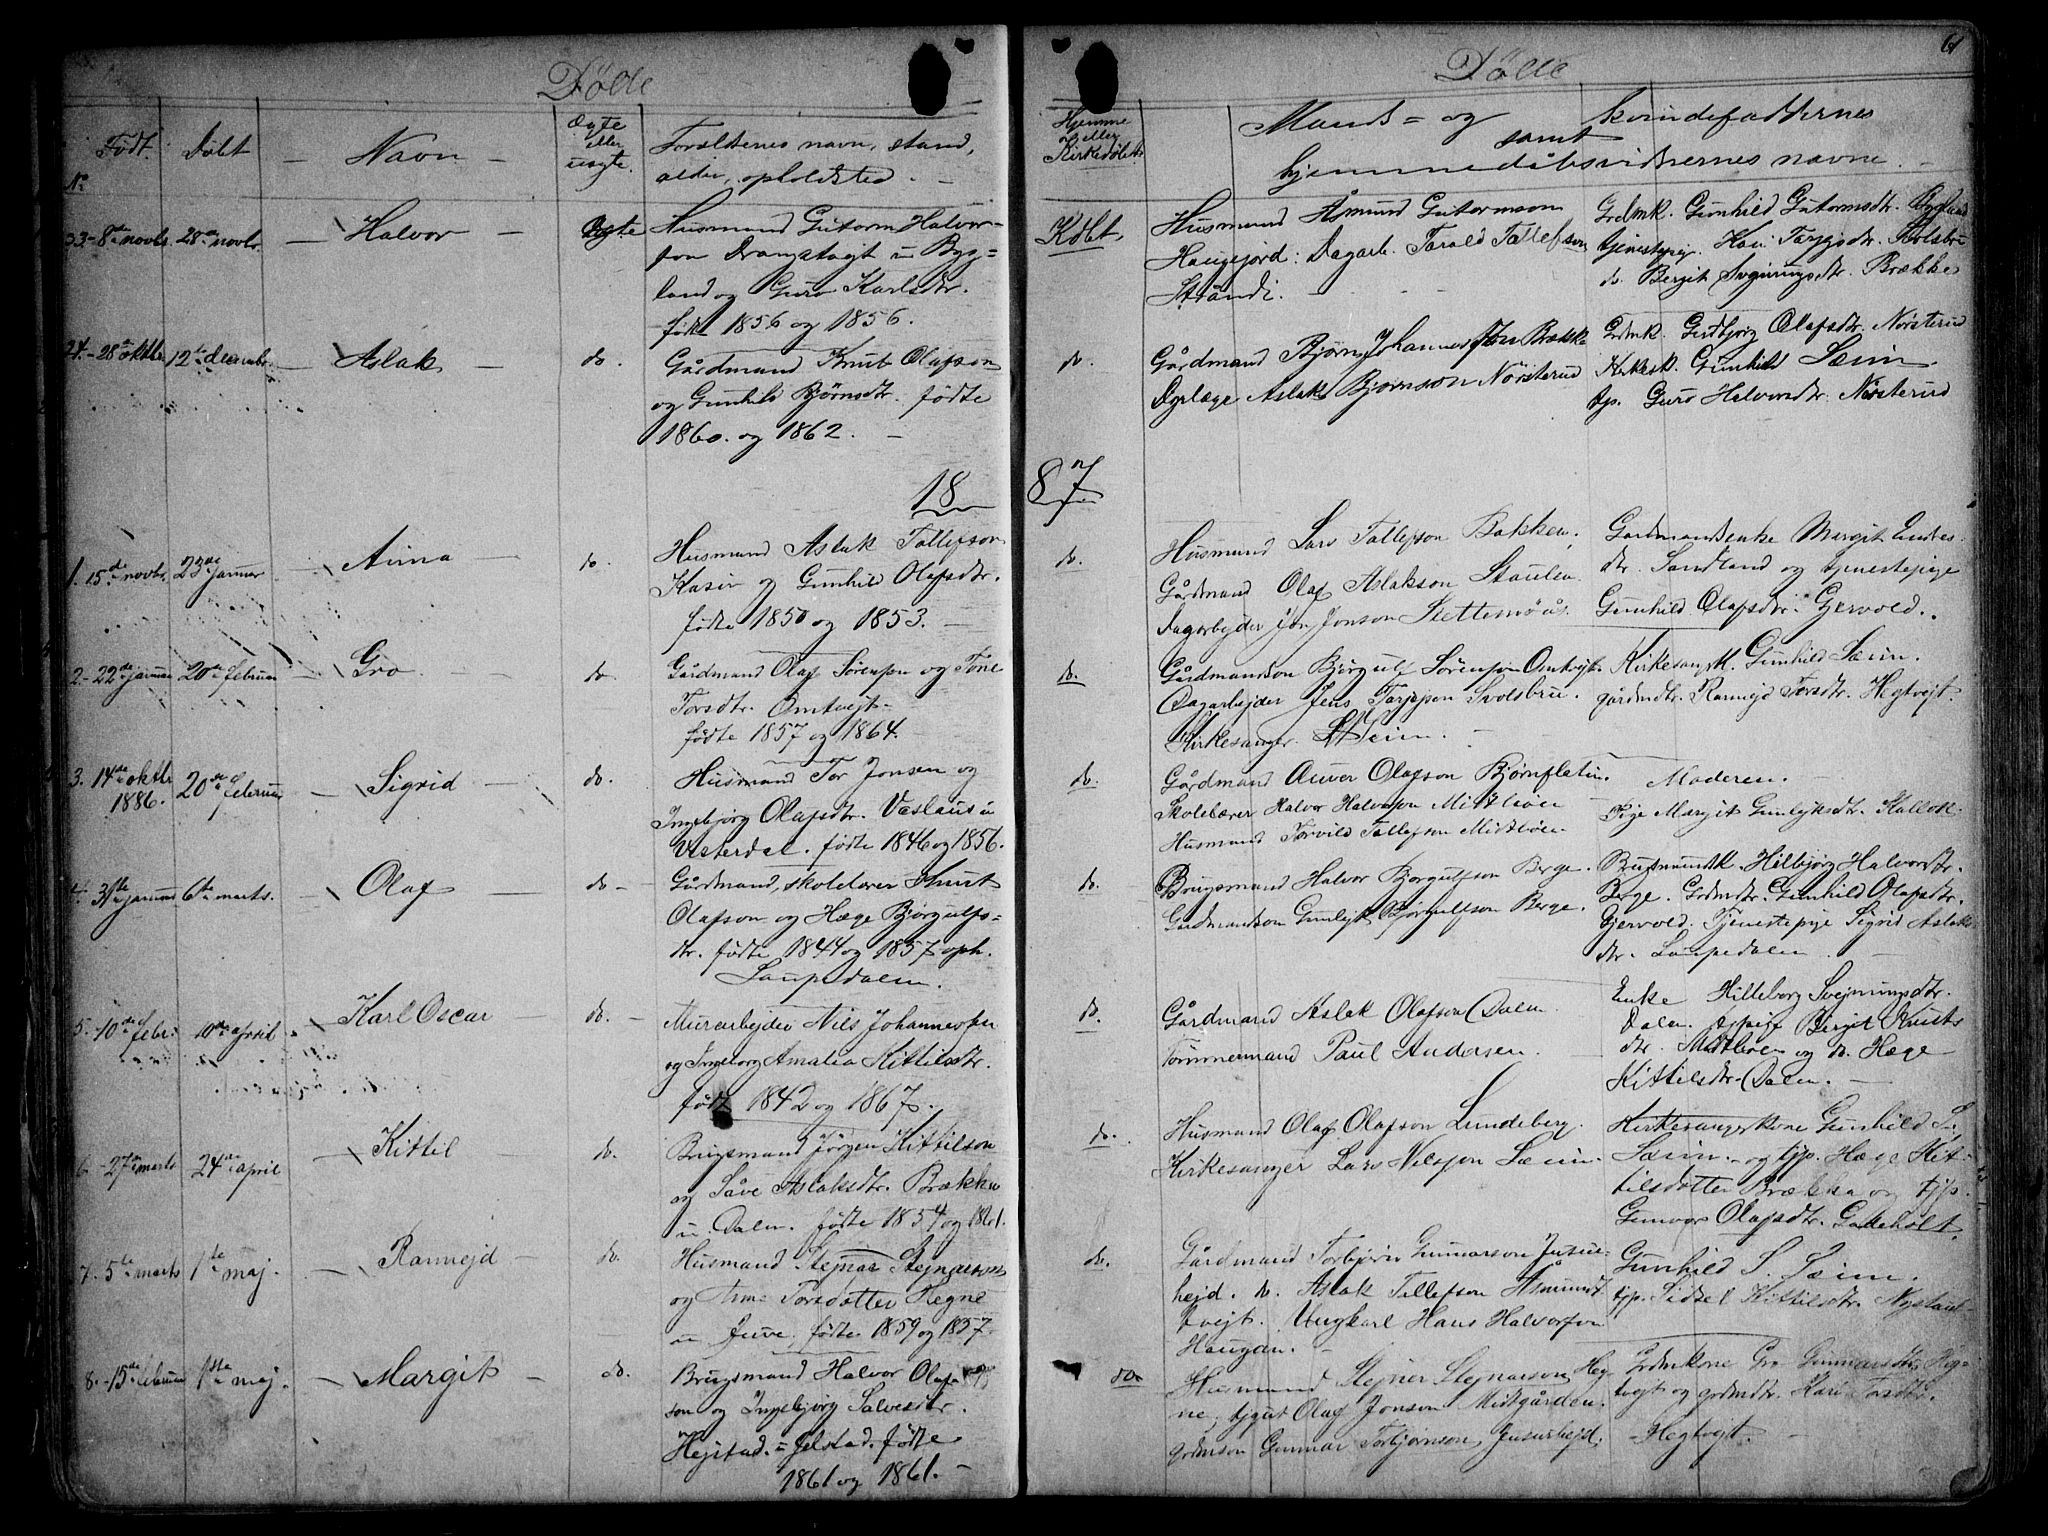 61
Døbte
Døbte
No
Født.
Døbt
Navn
Ægte eller uægte.
Forældrenes navn, stand, alder, opholdsted.
Hjemme eller Kirkedøbt
Mands- og kvindefaddernes samt
hjemmedåbsvidnernes navne.
33 - 8de novbr. 28de novbr. Halvor Ægte
Husmand Gutorm Halvor-
son Dramstøgt u Byg-
land og Guro Karlsdtr.
fødte 1856 og 1856.
Kdbt
Husmand Åsmund Gutormson
Haugejord: Dagarb. Tarald Tallefson
Strandi.
Grdmk. Gunhild Gutormsdtr. Bygland
tjenestepige Kari Tarjeisdtr.
do Bergit Svejnungsdtr. Brække
34. - 28de oktbr. 12te decembr. Aslak do.
Gårdmand Knut Olafson
og Gunhild Bjørnsdtr. fødte
1860. og 1862.
do.
Gårdmand Bjørn Johannesson Brække
Dyrlæge Aslak Bjørnson Nørsterud
Grdmk. Gudbjørg Olafsdtr. Nørsterud
Kirkesk. Gunhild Sæim
tjp. Guro Halvorsdtr. Nørsterud
1887
1. 15de novbr. 23de januar Anna do.
Husmand Aslak Tallefson
Kasin og Gunhild Olafsdtr.
fødte 1850 og 1853.
do.
Husmand Lars Tallefson Bakken,
Gårdmand Olaf Aslakson Staulen
Dagarbejder Jon Jonson Slettemoås.
Gardmandsenke Margit Knuts-
dtr. Sandland og tjenestepige
Gunhild Olafsdtr. Gjervold.
2. - 22de januar 20de februar Gro do.
Gårdmand Olaf Sørenson og Tone
Torsdtr. Omtvejt
fødte 1857 og 1864.
do.
Gårdmandson Bjørgulf Sørenson Omtvejt
Dagarbejder Jens Tarjeson
Kirkesanger Sæim.
Kirkesangsk. Gunhild Sæim.
gårdmdtr. Rannejd Torsdtr. Hegtvejt.
3. 14de oktbr 1886. 20de februar Sigrid do.
Husmand Tor Jonsen og
Ingebjørg Olafsdtr. Vaslaus u
Vesterdal. fødte 1846 og 1856.
do.
Gårdmand Auver Olafson Bjørnflatin.
Skolelærer Halvor Halvorson Midtløien
Husmand Torvild Tallefson Midtløien
Moderen.
Pige Margit Gunlejksdtr.
4. 31te januar 6te marts. Olaf do
Gårdmand, skolelærer Knut
Olafson og Hæge Bjørgulfs-
dtr. fødte 1844 og 1857 oph.
Laupedalen.
do.
Brugsmand Halvor Bjørgulfson Berge.
Gårdmandson Gunlejk Bjørgulfson Berge.
Brugsmandsk. Hilbjørg Halvorsdtr.
Berge. Grdmdtr. Gunhild Olafsdtr.
Gjervold. Tjenestepige Sigrid Aslaks-
dtr. Laupedalen
5. - 10de febr. 10de april Karl Oscar do.
Murarbejder Nils Johanneson
og Ingeborg Amalia Kittilsdtr.
født 1842 og 1867.
do.
Gårdmand Aslak Olafson Dalen
Tømmermand Paul Andersen.
Enke Hilleborg Svejnungsdtr.
Dalen. Pige Bergit Knuts
dtr. Midtløien og do. Hæge
Kittilsdtr Dalen.
6. - 27de marts 24de april Kittil do.
Brugsmand Jørgen Kittilson
og Såve Aslaksdtr. Brækka
u Dalen. fødte 1854 og 1861.
do.
Husmand Olaf Olafson Lundeberg.
Kirkesanger Lars Nilsson Sæim.
Kirkesangerkone Gunhild S.
Sæim. og tjp. Hæge Kit-
tilsdatter Brækka og tjp.
Gunvor Olafsdtr.
7. - 5te marts 1ste maj. Rannejd do.
Husmand Stejnar Stejnarson
og Anne Torsdatter Hegne
u Juve, fødte 1859 og 1857.
do.
Gårdmand Torbjørn Gunnarson Jusur-
hejd. do. Aslak Tallefson Åsmund-
tvejt. Ungkarl Hans Halvorson
Haugan.
Gunhild S. Sæim.
tjp. Sidsel Kittilsdtr. Nystaul
8. - 15de februar 1ste maj. Margit do.
Brugsmand Halvor Olaf-
son og Ingebjørg Salvesdtr.
Hejstad. u Jelstad. fødte
1861 og 1861.
do.
Husmand Stejner Stejnarson Heg-
ne, tjgut Olaf Jonson Midtgården.
grdmson Gunnar Torbjørnson Jusurhejd.
Grdmkone Gro Gunnarsdtr. Heg-
tvejt og grdmdtr. Kari Torsdtr.
Hegtvejt.